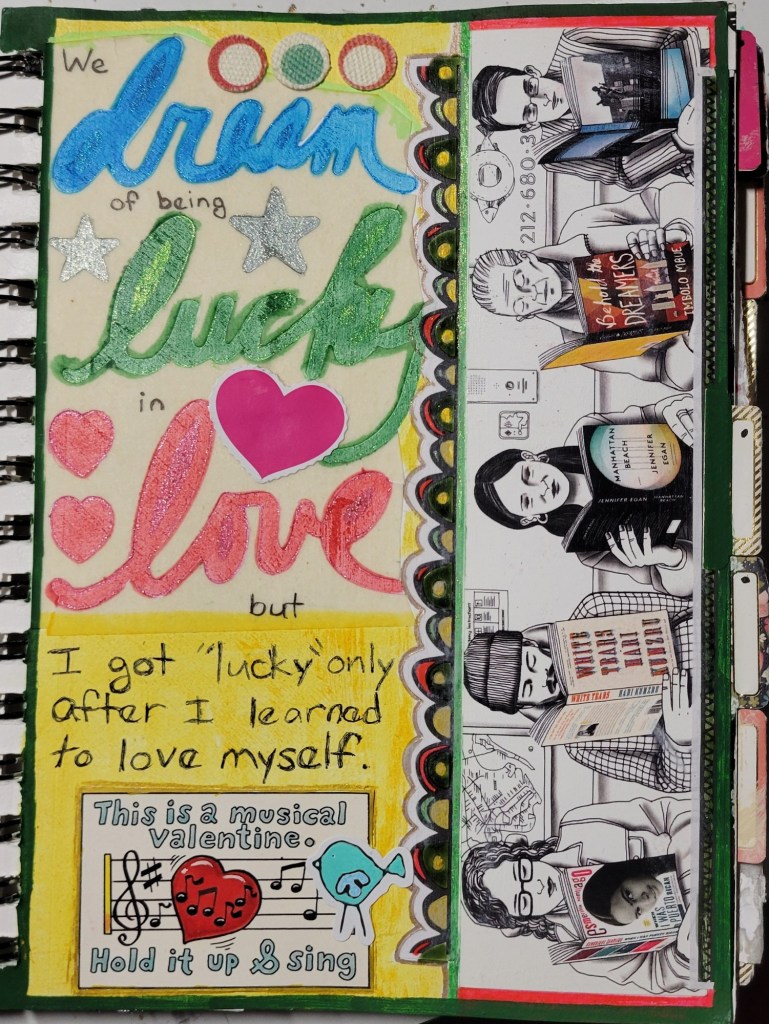 We
dream
of being
lucky
in
love
but
I got "lucky" only
after I learned
to love myself.
This is a musical
valentine.
Hold it up & sing
212·680·3
Behold the
DREAMERS
IMBOLO MBUE
MANHATTAN
BEACH
JENNIFER
EGAN
JENNIFER EGAN
MANHATTAN
BEACH
WHITE
TEARS
HARI
KUNZRU
WHITE TEARS
HARI KUNZRU
WHEN
I WAS
PUERTO RICAN